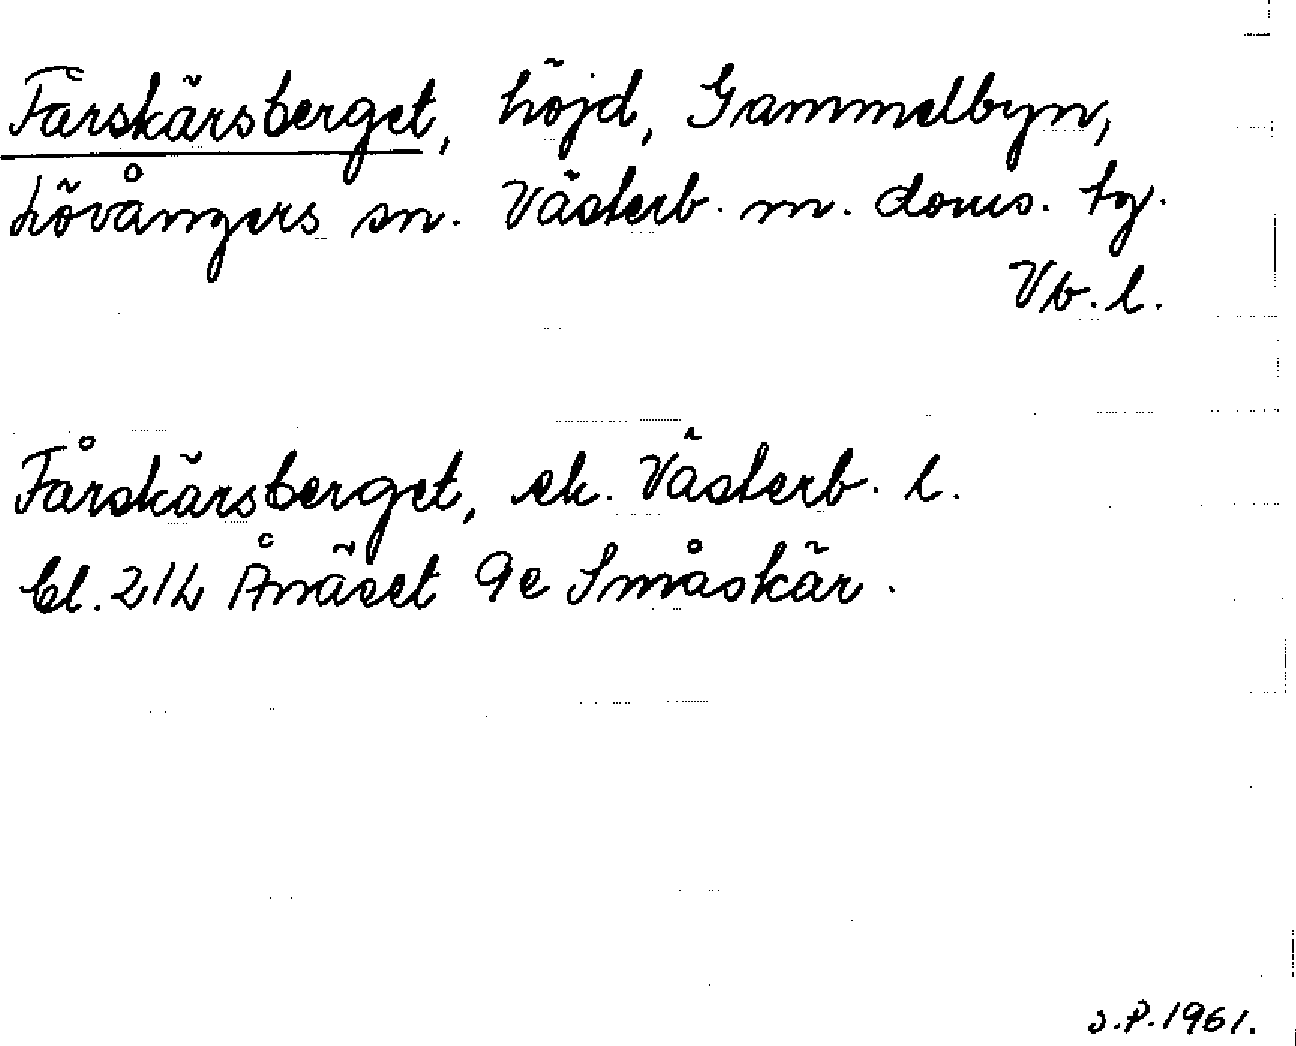 Fårskärsberget, höjd, Gammelbyn,
Lövångers sn. Västerb. m. doms. tg.
Vb. l.
Fårskärsberget, ek. Västerb. l.
bl. 21L Ånäset 9e Småskär.
S.P. 1961.